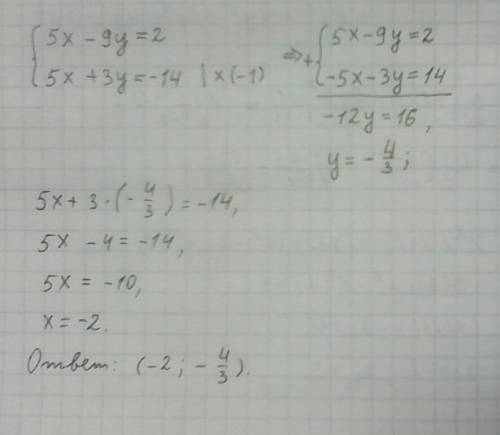 5x - 9y = 2
5x + 3y = -14 | x (-1)
⇒ + 5x - 9y = 2
-5x - 3y = 14
-12y = 16,
y = - 4/3 ;
5x + 3 · (- 4/3) = -14,
5x - 4 = -14,
5x = -10,
x = -2.
Ответ: (-2 ; - 4/3).